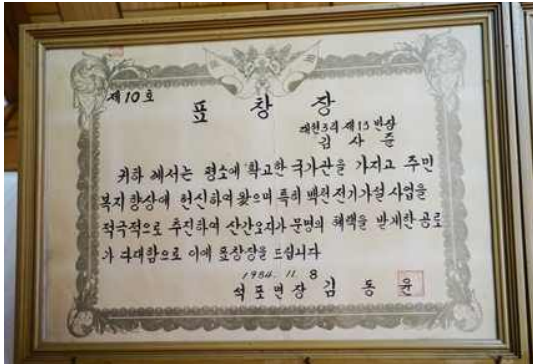 제10호
표창장
대현3리 제13반장
김사준
귀하 께서는 평소에 확고한 국가관을 가지고 주민
복지향상에 헌신하여 왔으며 특히 백천 전기가설 사업을
적극적으로 추진하여 산간오지가 문명의 혜택을 받게한 공로
가 다대함으로 이에 표창장을 드립니다
1984. 11. 8
석포면장 김동윤